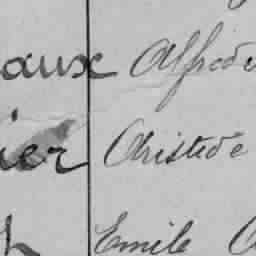 aux Alfred
ier Aristide
Emile